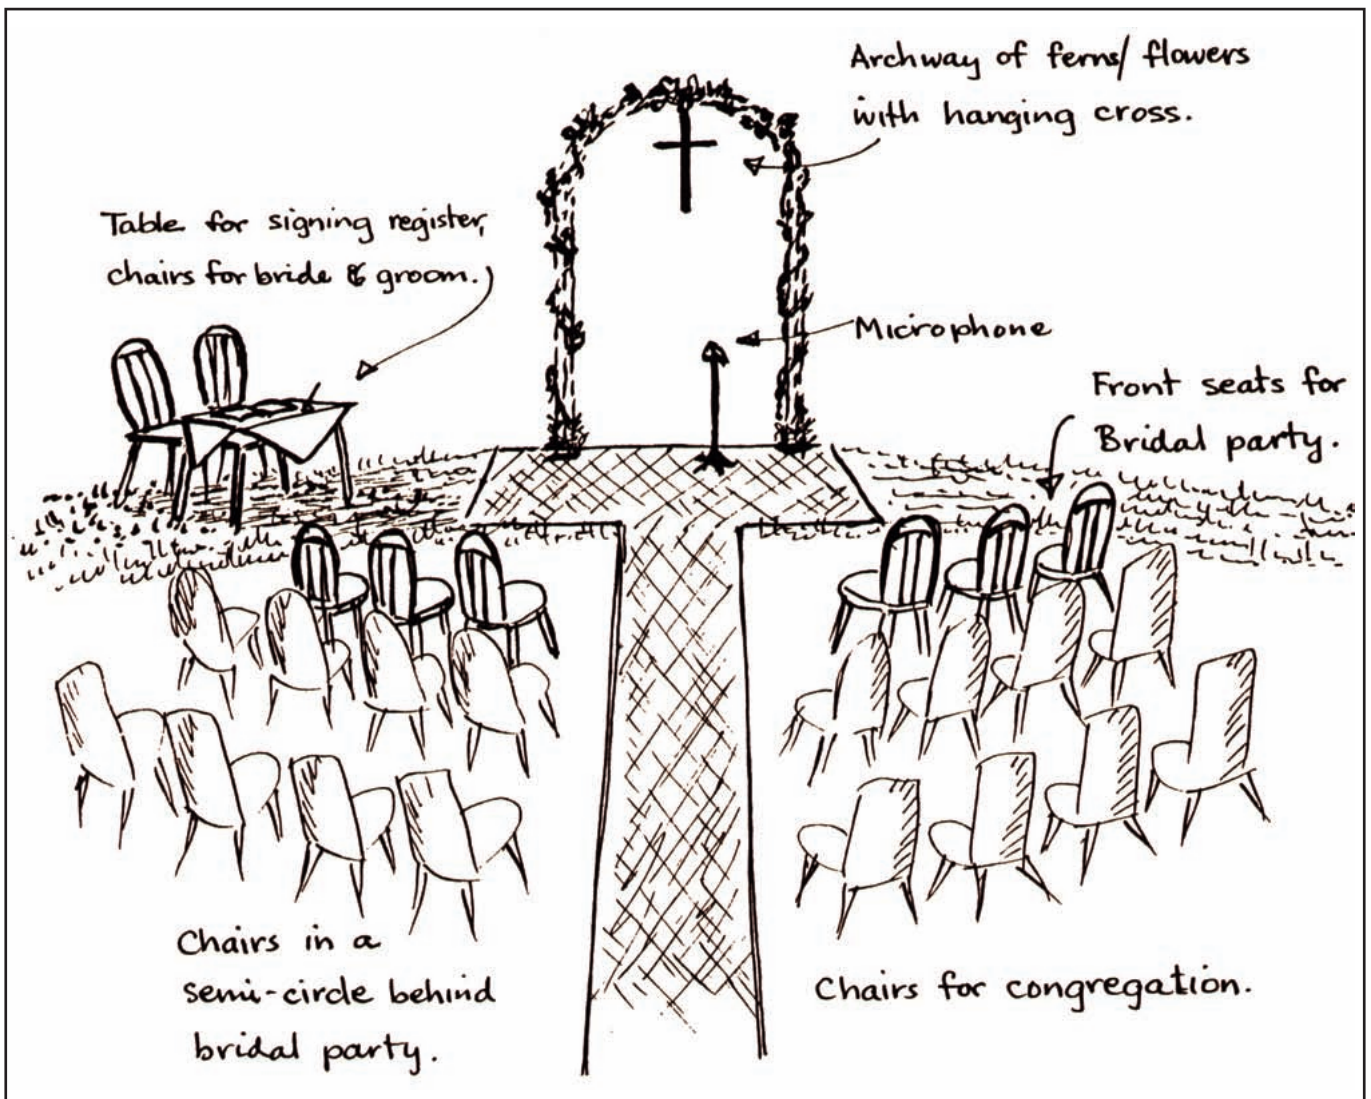 Archway of ferns/ flowers
with hanging cross.
Table for signing register,
chairs for bride & groom.
Microphone
Front seats for
Bridal party.
Chairs in a
semi-circle behind
bridal party.
Chairs for congregation.